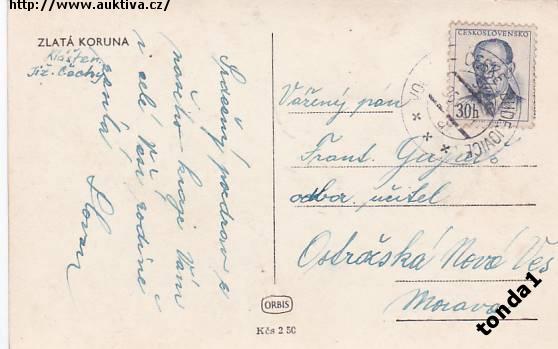 http://www.auktiva.cz/
ZLATÁ KORUNA
Klášter
Již. Čechy
Srdečný pozdrav z
našeho kraje Vám
i celé Vší rodině
Slovan
ČESKOSLOVENSKO
30h
ČESKÉ BUDĚJOVICE
Vážený pán
Frant.
odbor. učitel
Ostrožská Nová Ves
Morava
ORBIS
Kčs 2 50
tonda1